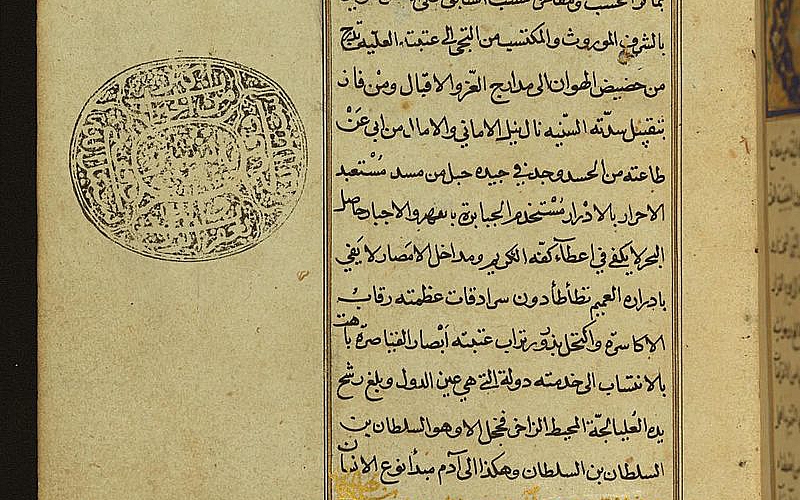 بالشرف الموروث والمكتسب من التجى الى عتبته العليه تدرج
من حضيض الهوان الى مدارج العز والاقبال ومن فاز
بتقبيل سدته السنيه نال نيل الامانى والامال من ابى عَنْ
طاعته من الحسد وجد فى جيده حبل من مسد مُسْتعبد
الاحرار بالادرار مُسْتخدم الجبابرة بالقهر والاجبار حاصل
البحر لا يكفى فى اعطاء كفه الكريم ومداخل الامصار لا يَفى
بادراره العميم تطأطأ دون سرادقات عظمته رقابُ
الاكاسرة واكتحل بذرور تراب عتبته اَبْصار القياصرة باهت
بالانتساب الى خدمته دولة التى هى عين الدول وبلغ رشح
يده العُليا لجة المحيط الزاخر فخجل الا وهو السلطان بن
السلطان بن السلطان وهكذا الى آدم مبدأ نوع الانسان